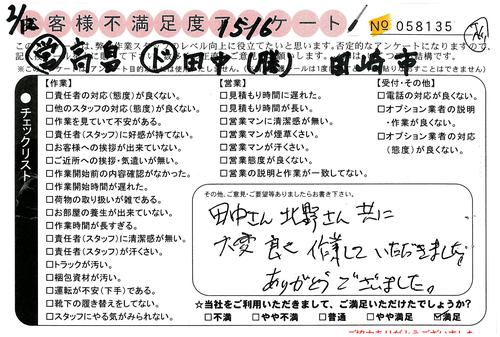 お客様不満足度アンケート
2/12 1516 No 058135
営高畠 ド田中(勝) 岡崎市
チェックリスト
【作業】
□責任者の対応(態度)が良くない。
□他のスタッフの対応(態度)が良くない。
□作業を見ていて不安がある。
□責任者(スタッフ)に好感が持てない。
□お客様への挨拶が出来ていない。
□ご近所への挨拶・気遣いが無い。
□作業開始前の内容確認がなかった。
□作業開始時間が遅れた。
□荷物の取り扱いが雑である。
□お部屋の養生が出来ていない。
□作業時間が長すぎる。
□責任者(スタッフ)に清潔感が無い。
□責任者(スタッフ)が汗くさい。
□トラックが汚い。
□梱包資材が汚い。
□運転が不安(下手)である。
□靴下の履き替えをしてない。
□スタッフにやる気がみられない。
【営業】
□見積もり時間に遅れた。
□見積もり時間が長い。
□営業マンに清潔感が無い。
□営業マンが煙草くさい。
□営業マンが汗くさい。
□営業態度が良くない。
□営業の説明と作業が一致してない。
【受付・その他】
□電話の対応が良くない。
□オプション業者の説明
・作業が良くない。
□オプション業者の対応
(態度)が良くない。
その他、ご意見・ご要望等ありましたらお書き下さい。
田中さん 北野さん 共に
大変 良く 作業して いただきました。
ありがとう ございました。
☆当社をご利用いただきまして、ご満足いただけたでしょうか?
□不満 □やや不満 □普通 □やや満足 ☑満足
ご協力ありがとうございました